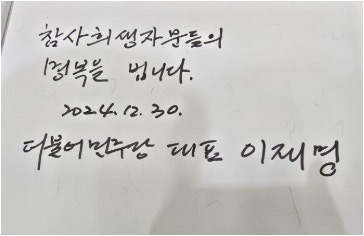 참사희생자분들의
명복을 빕니다.
2024. 12. 30.
더불어민주당 대표 이재명